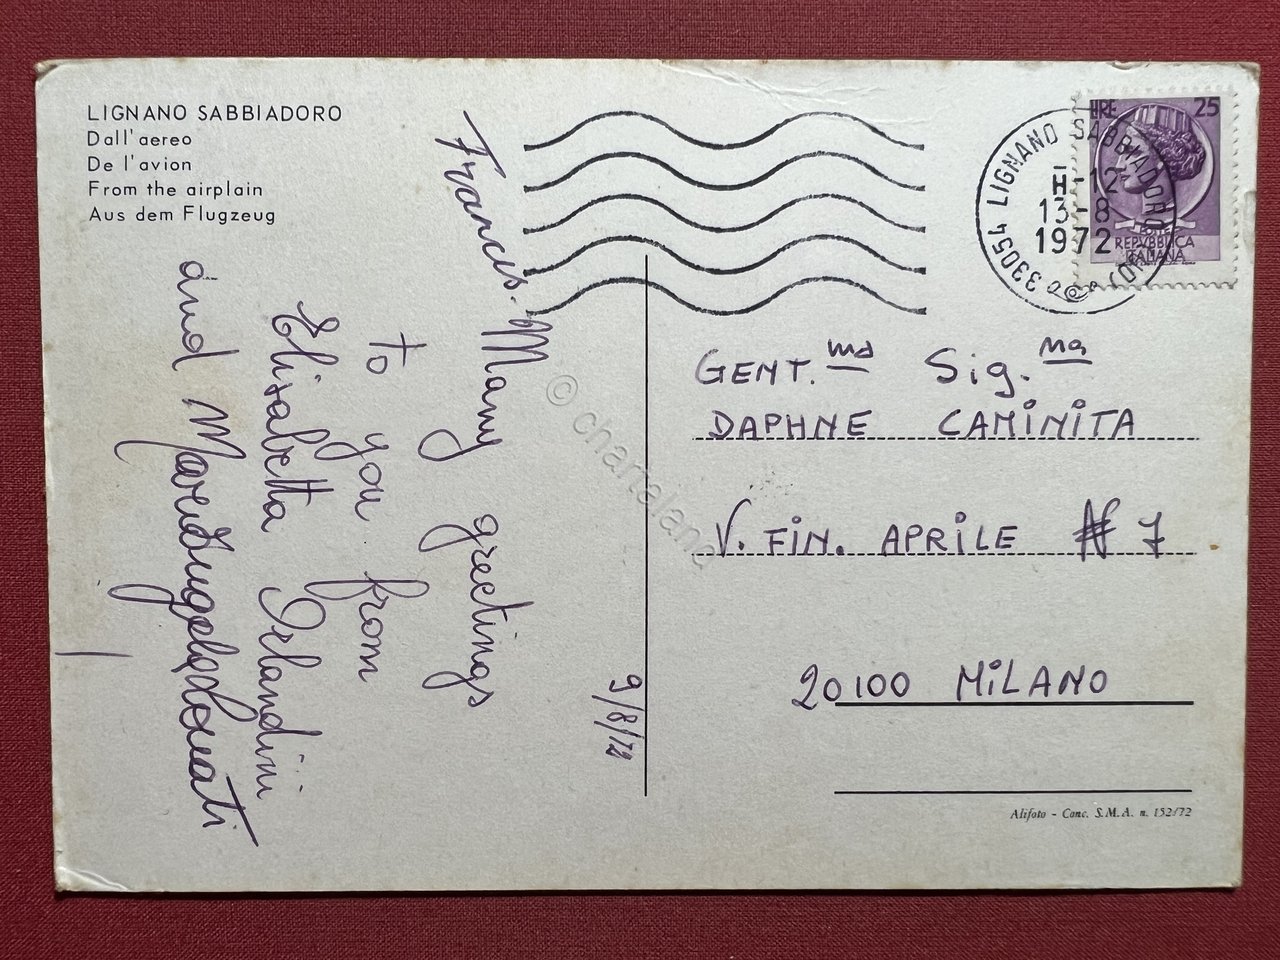 LIGNANO SABBIADORO
Dall'aereo
De l'avion
From the airplain
Aus dem Flugzeug
Francis. Many greetings
to you from
Elisabetta Orlandini
and Mariangela Lovati
9/8/72
LIRE 25
POSTE
REPVBBLICA
ITALIANA
33054 LIGNANO SABBIADORO (UD)
H-12
13-8
1972
GENT.ma Sig.na
DAPHNE CAMINITA
V. FIN. APRILE N 7
20100 MiLANO
Alifoto - Conc. S.M.A. n. 152/72
© chartaland